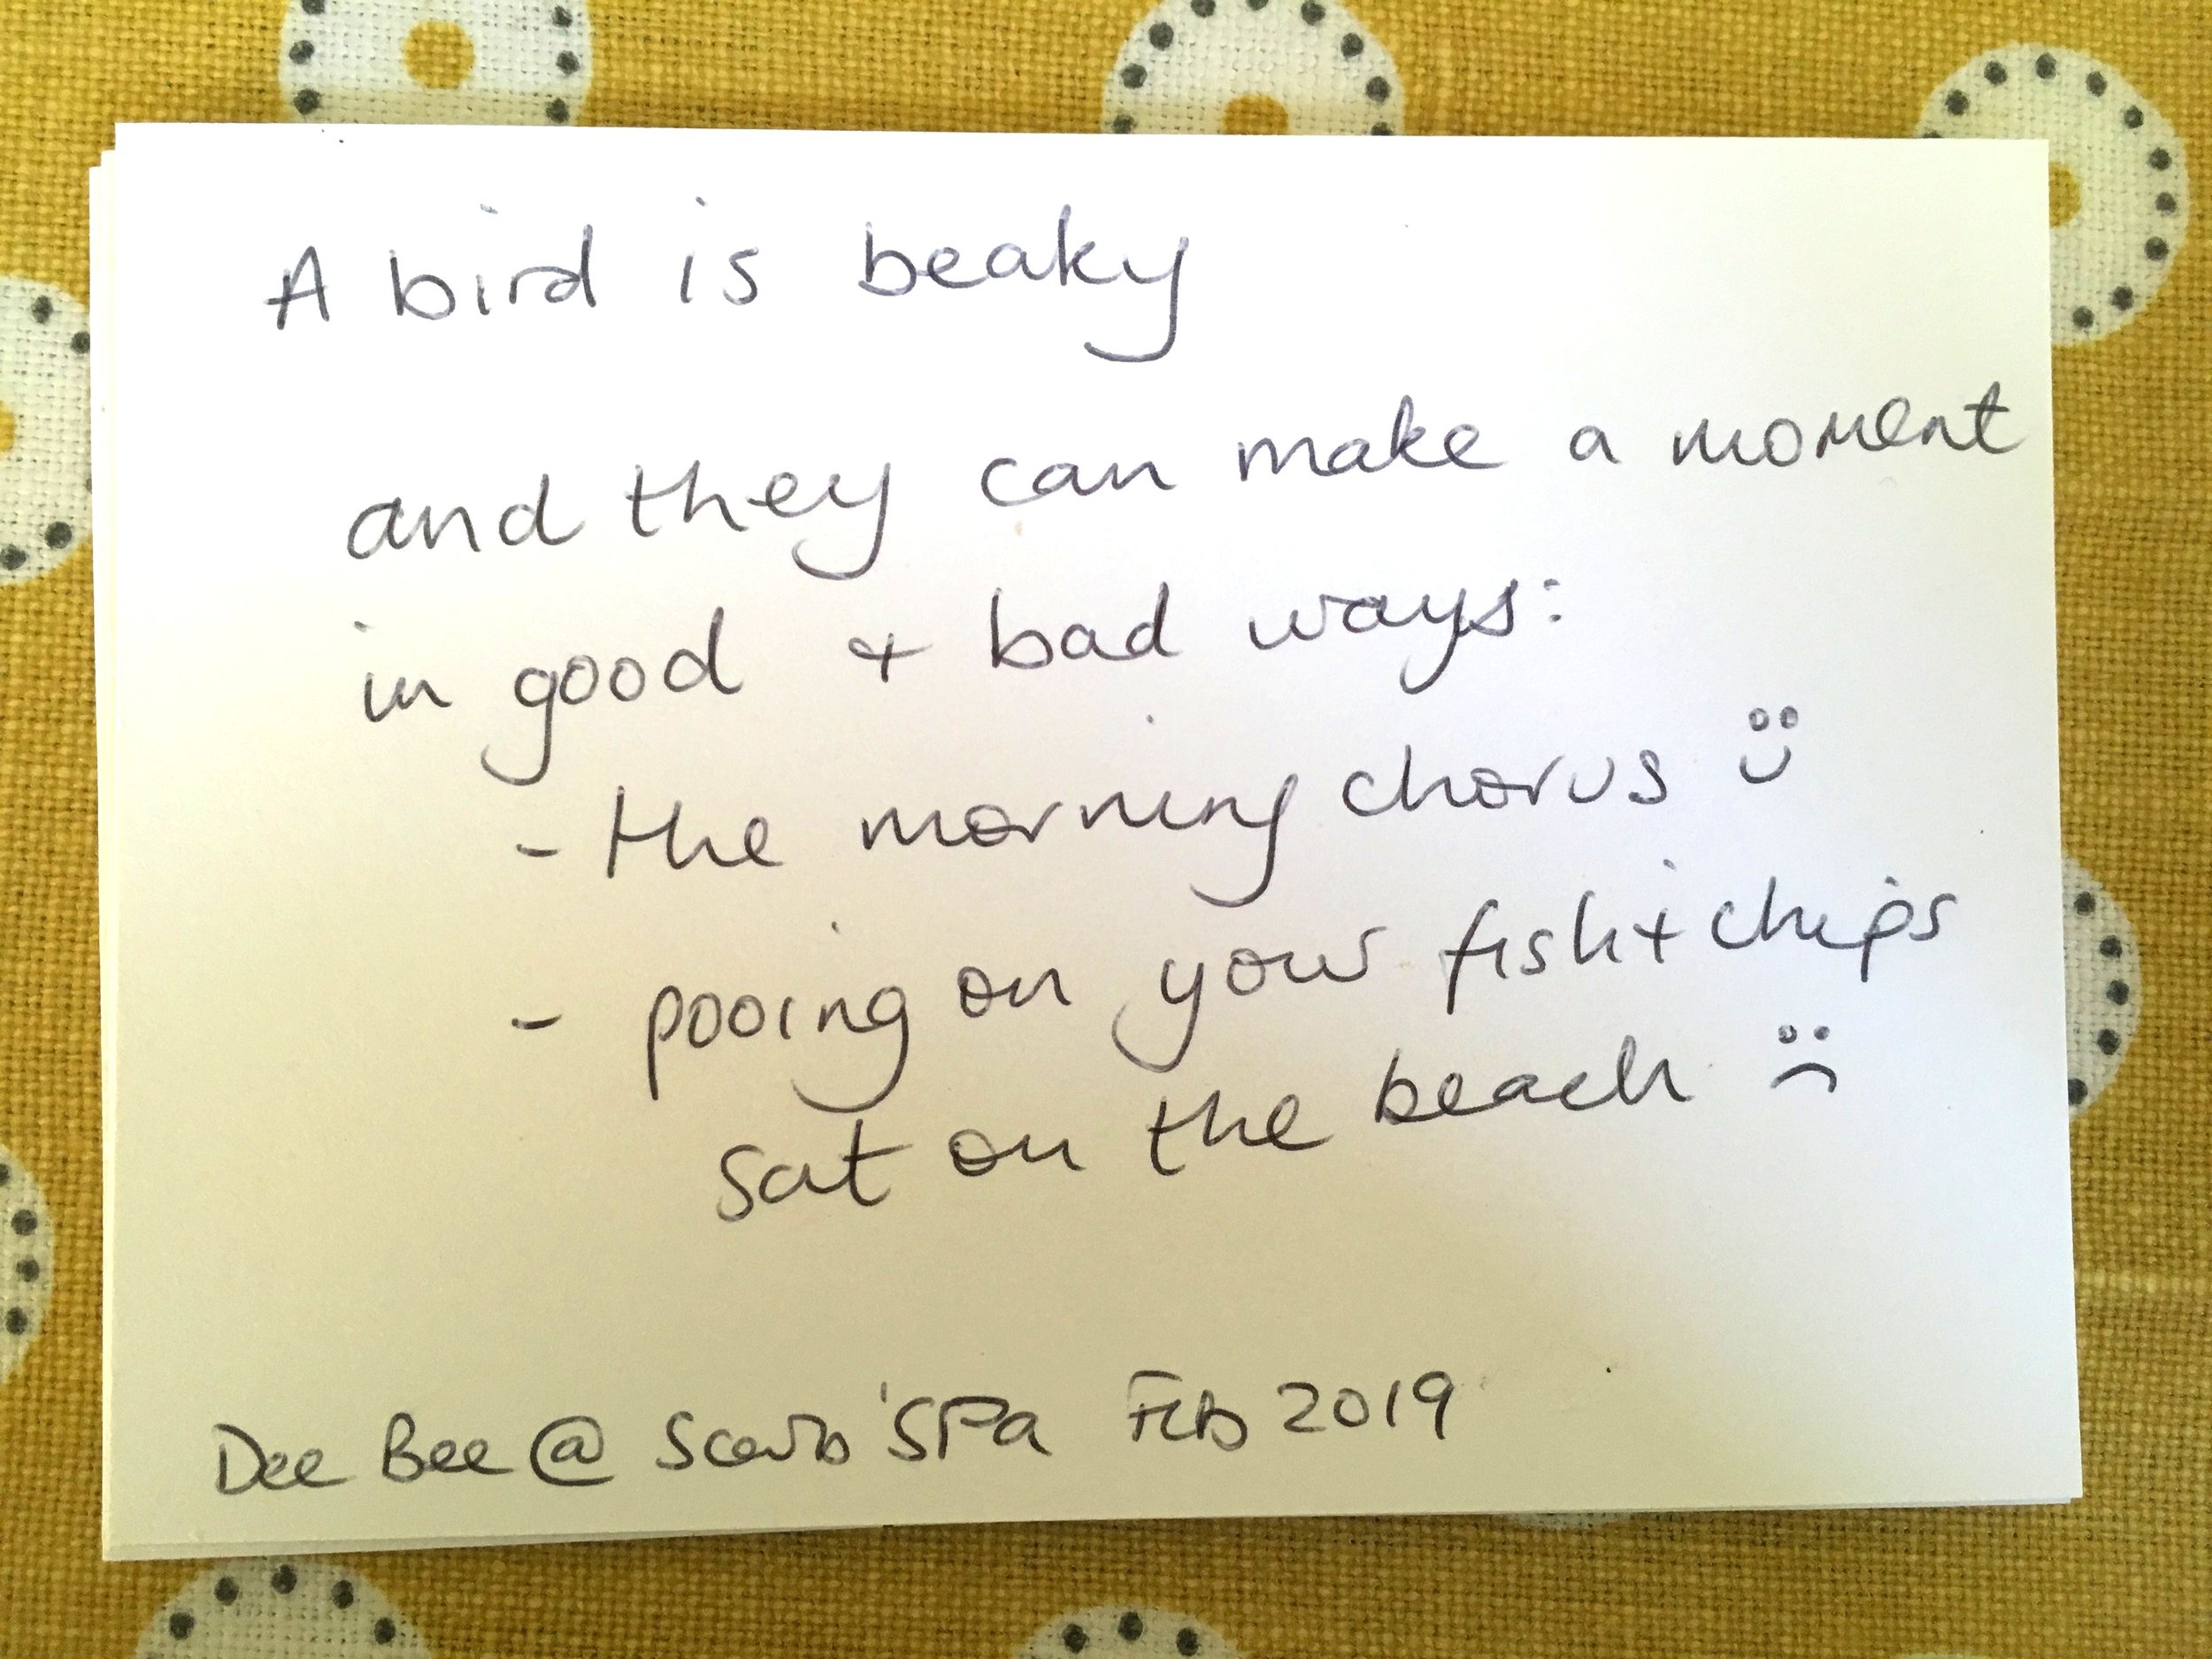 A bird is beaky
and they can make a moment
in good + bad ways:
- the morning chorus :)
- pooing on your fish + chips
sat on the beach :(
Dee Bee @ Scarb 'SPa Feb 2019